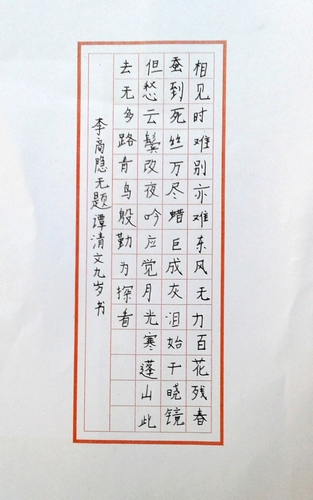 相见时难别亦难东风无力百花残春
蚕到死丝万尽蜡巨成灰泪始干晓镜
但愁云鬓改夜吟应觉月光寒蓬山此
去无多路青鸟般勤为探看
李商隐无题谭清文九岁书